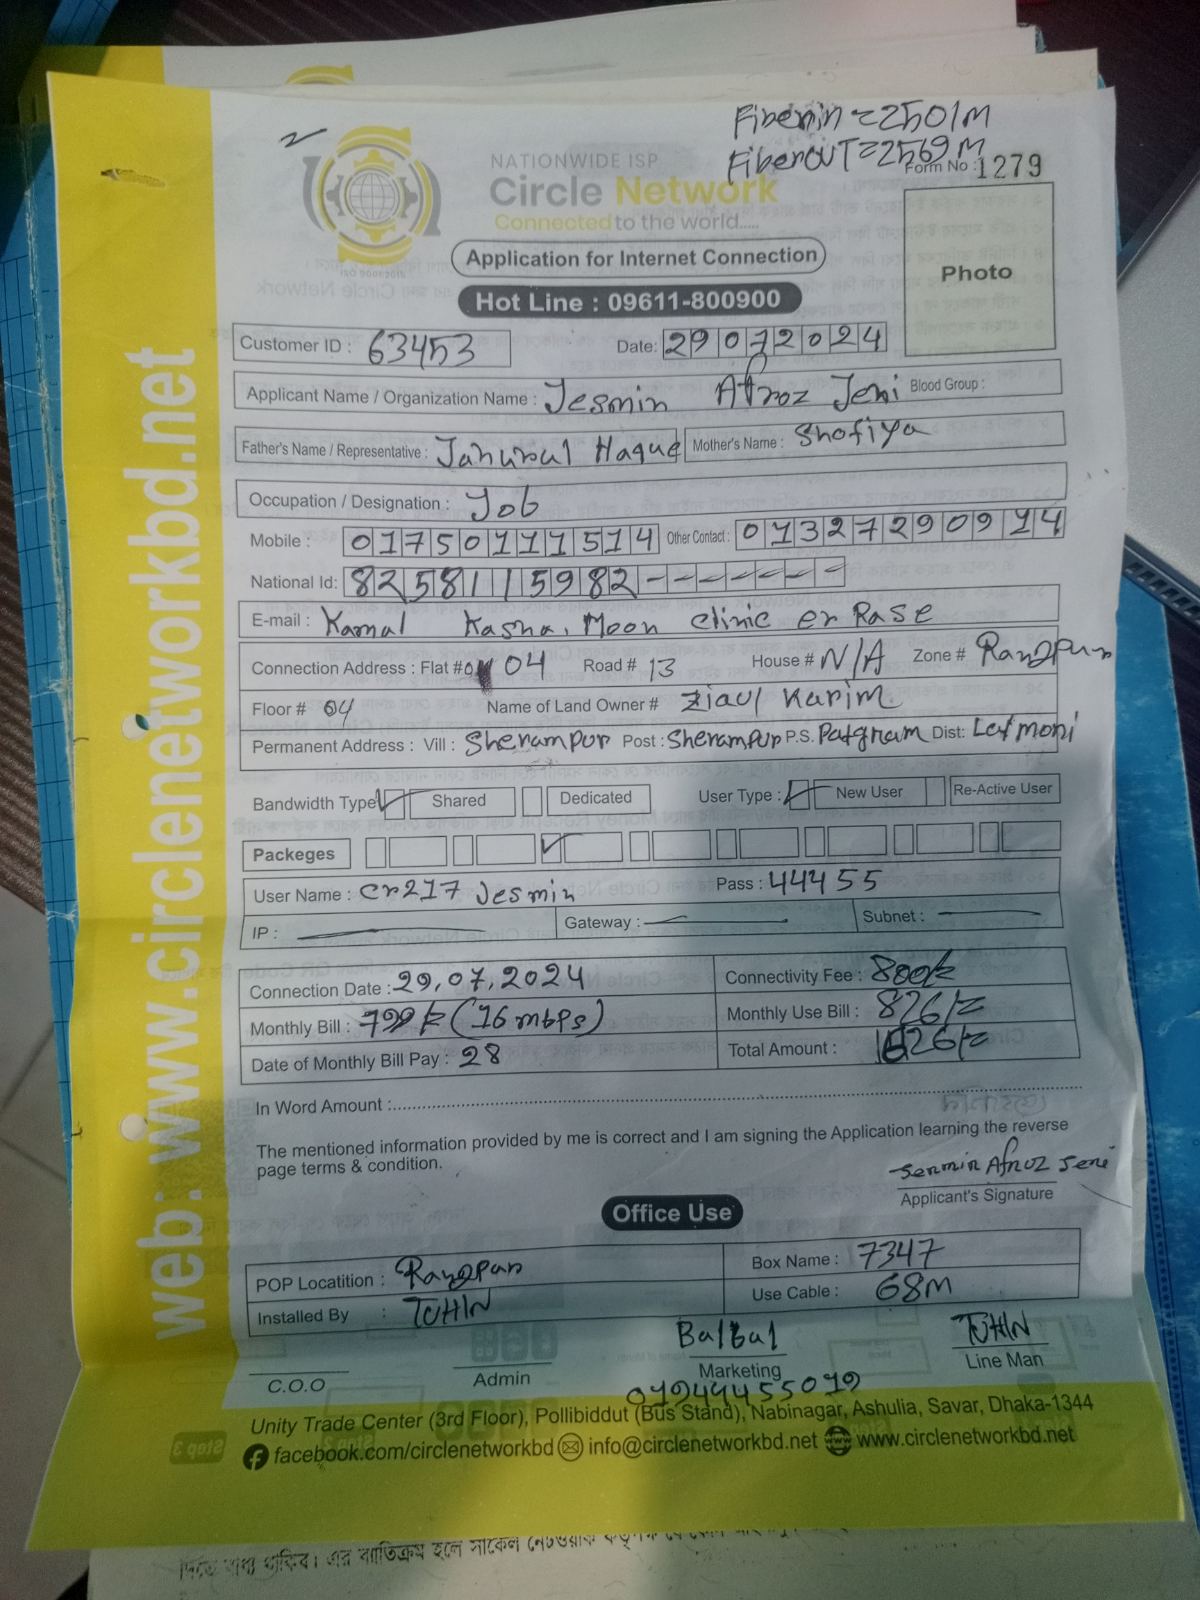 Fiberin = 2501M
FiberOUT = 2569M
NATIONWIDE ISP
Circle Network
Connected to the world.....
Form No : 1279
ISO 9001:2015
Application for Internet Connection
Hot Line : 09611-800900
Photo
Customer ID : 63453 Date: 29072024
Applicant Name / Organization Name : Jesmin Afroz Jeni Blood Group :
Father's Name / Representative : Jahurul Haque Mother's Name : Shofiya
Occupation / Designation : Job
Mobile : 01750111514 Other Contact : 01327290914
National Id: 8258115982
E-mail : Kamal Kasna, Moon clinic er Pase
Connection Address : Flat # 04 Road # 13 House # N/A Zone # Rangpur
Floor # 04 Name of Land Owner # Ziaul Karim
Permanent Address : Vill : Sherampur Post : Sherampur P.S. Patgram Dist: Lalmoni
Bandwidth Type ✓ Shared Dedicated User Type : ✓ New User Re-Active User
Packeges ✓
User Name : cr217 Jesmin Pass : 44455
IP : Gateway : Subnet :
Connection Date : 29.07.2024 Connectivity Fee : 800/=
Monthly Bill : 799/= (16 mbps) Monthly Use Bill : 826/=
Date of Monthly Bill Pay : 28 Total Amount : 1626/=
In Word Amount :
The mentioned information provided by me is correct and I am signing the Application learning the reverse
page terms & condition.
Jesmin Afroz Jeni
Applicant's Signature
Office Use
POP Locatition : Rangpur Box Name : 7347
Installed By : TUHIN Use Cable : 68M
Bulbul TUHIN
C.O.O Admin Marketing Line Man
01944455019
Unity Trade Center (3rd Floor), Pollibiddut (Bus Stand), Nabinagar, Ashulia, Savar, Dhaka-1344
facebook.com/circlenetworkbd info@circlenetworkbd.net www.circlenetworkbd.net
web: www.circlenetworkbd.net